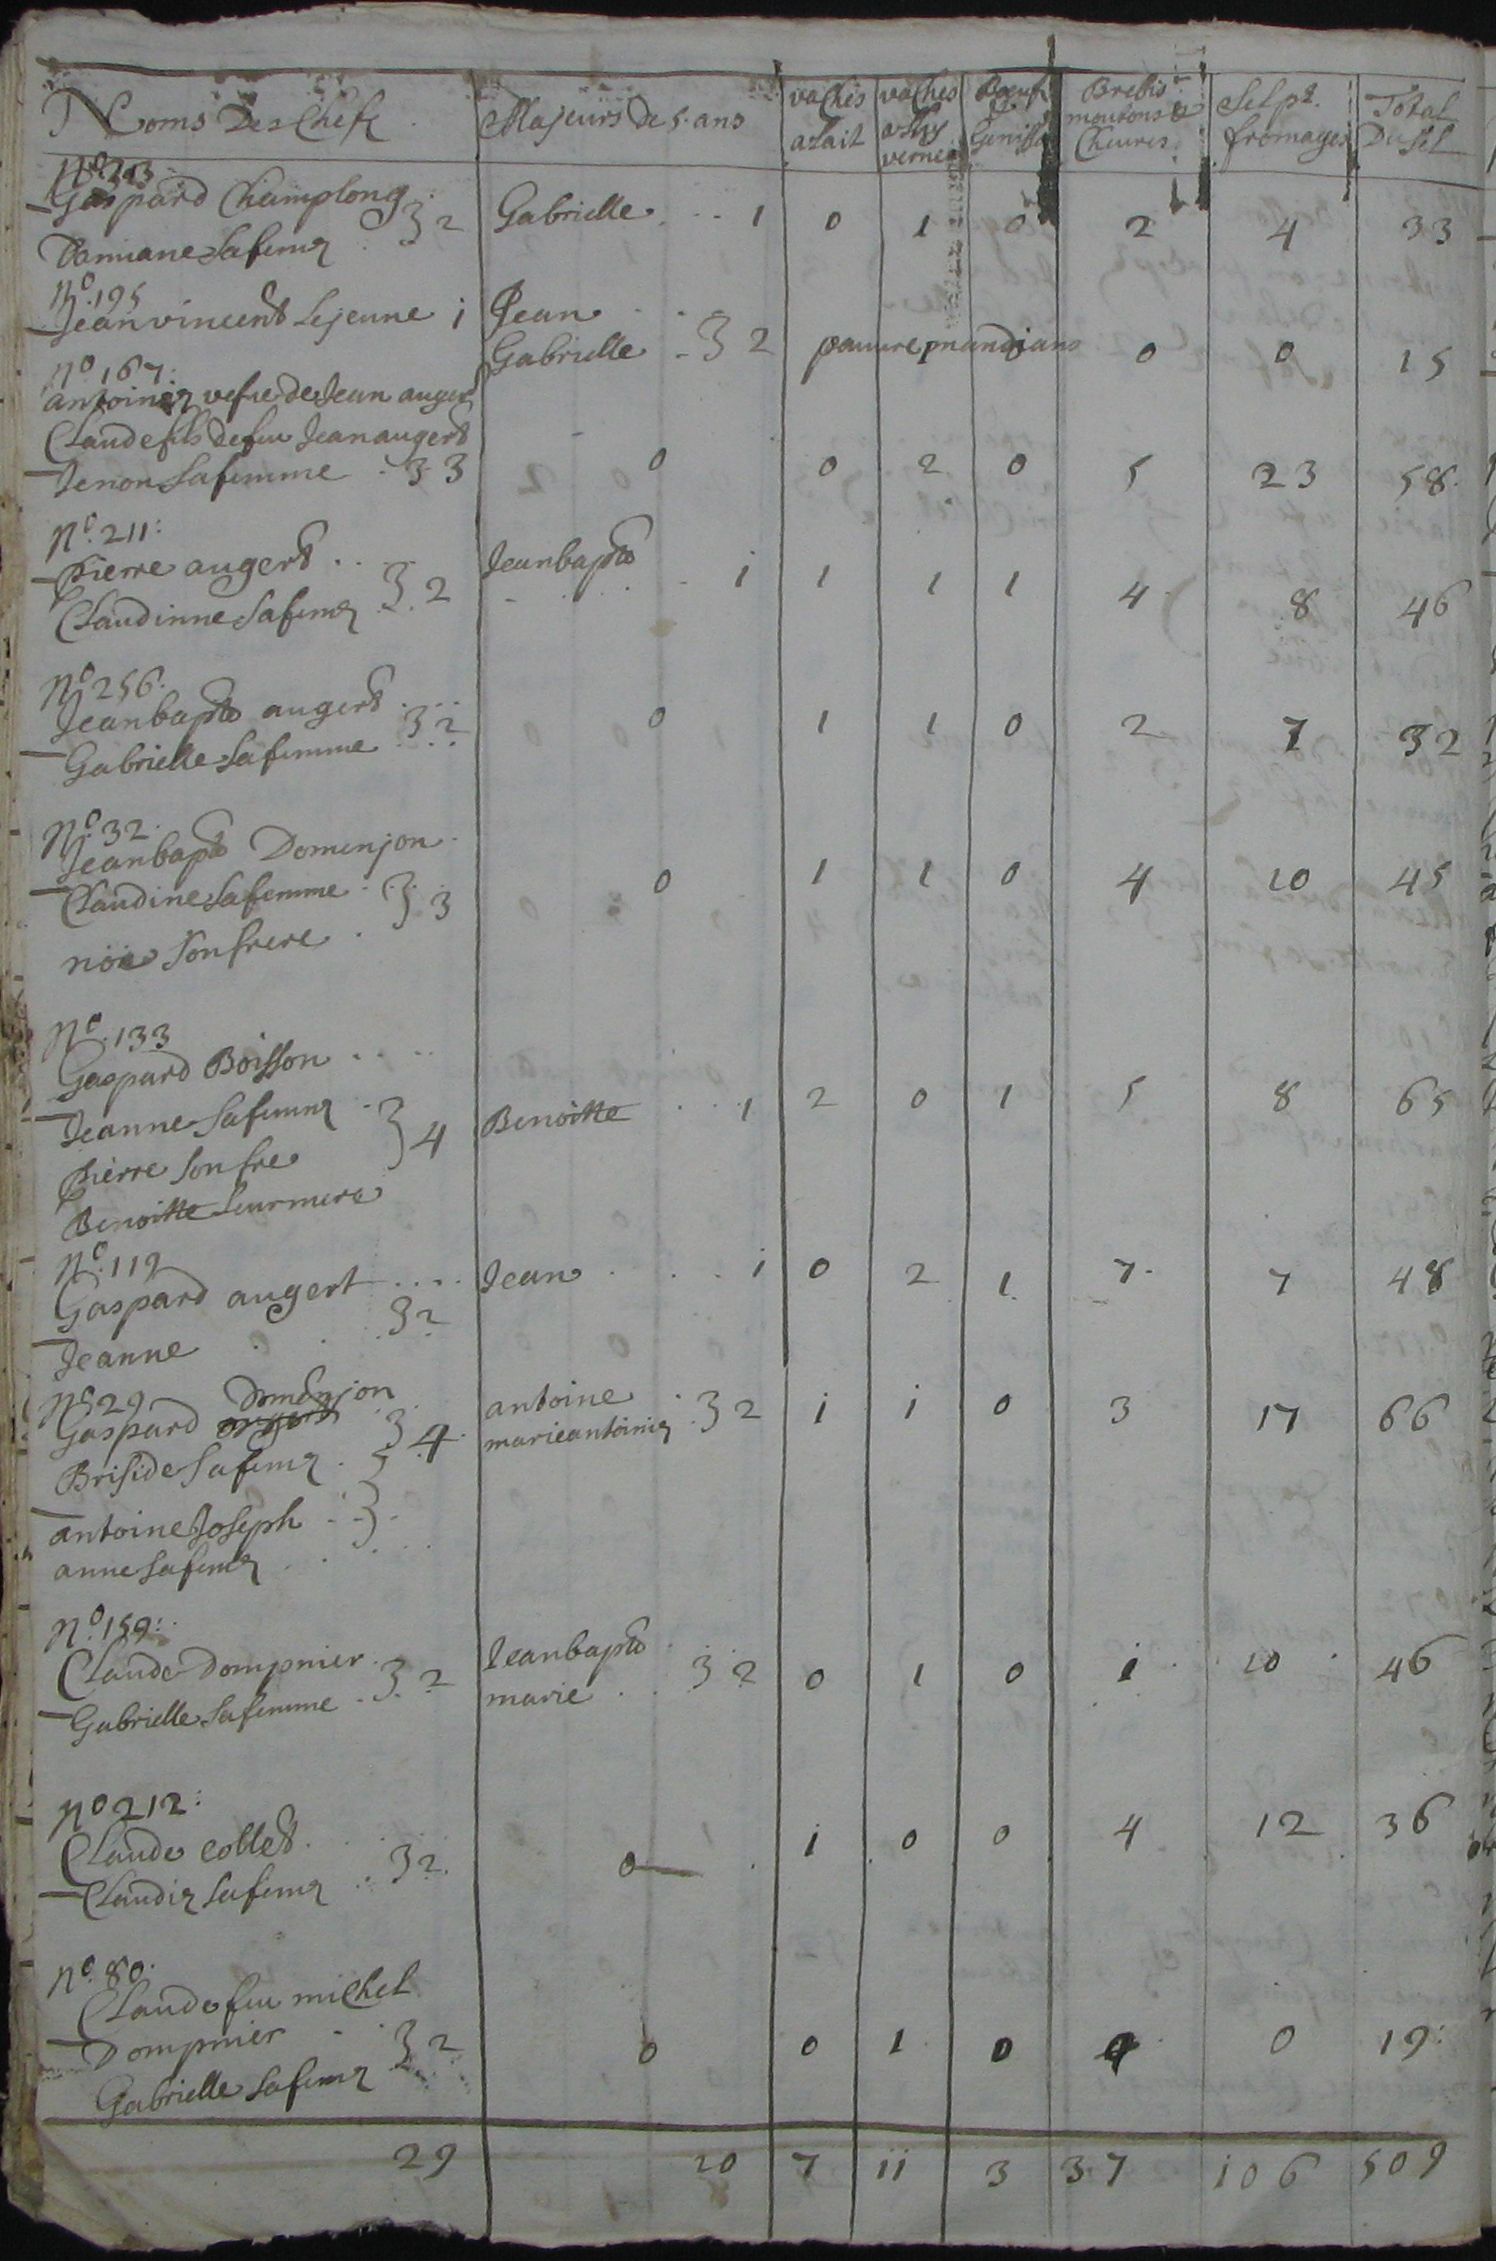 Noms Des Chefs Majeurs de 5 ans vaches alait vaches vernes Boeufs Genisses Brebis moutons & Cheures Sel pr. fromages Total Du Sel
No 213
Gaspard Champlong 2 Gabrielle 1 0 1 0 2 4 33
Damiane Safeme
No. 195
Jean vincent Lejeune 1 Jean
Gabrielle 2 pauure mandians 0 0 15
No 167:
antoine vefue de Jean augert
Claude fils de feu Jean augert
Jenon Safemme 3 0 0 2 0 5 23 58
No. 211:
pierre augert Jean bapte
Claudinne Safeme 2 1 1 1 1 4 8 46
No 256.
Jean bapte augert 2 0 1 1 0 2 7 32
Gabrielle Safemme
No. 32.
Jean bapte Domenjon
Claudine Safemme 3 0 1 1 0 4 10 45
noe Son frere
No. 133
Gaspard Boisson
Jeanne Safeme 4 Benoitte 1 2 0 1 5 8 65
pierre Son fre
Benoitte Leur mere
No. 119
Gaspard augert 2 Jean 1 0 2 1 7 7 48
Jeanne
No 29 Domenjon
Gaspard augert 4 antoine 2 1 1 0 3 17 66
Briside Safeme marie antoine
antoine Joseph
anne Safeme
No. 159:
Claude Dompnier 2 Jean bapte 2 0 1 0 1 10 46
Gabrielle Safemme marie
No 212:
Claude collet 2 0 1 0 0 4 12 36
Claudie Safeme
No. 80.
Claude feu michel
Dompnier 2 0 0 1 0 0 19:
Gabrielle Safeme
29 10 7 11 3 37 106 509